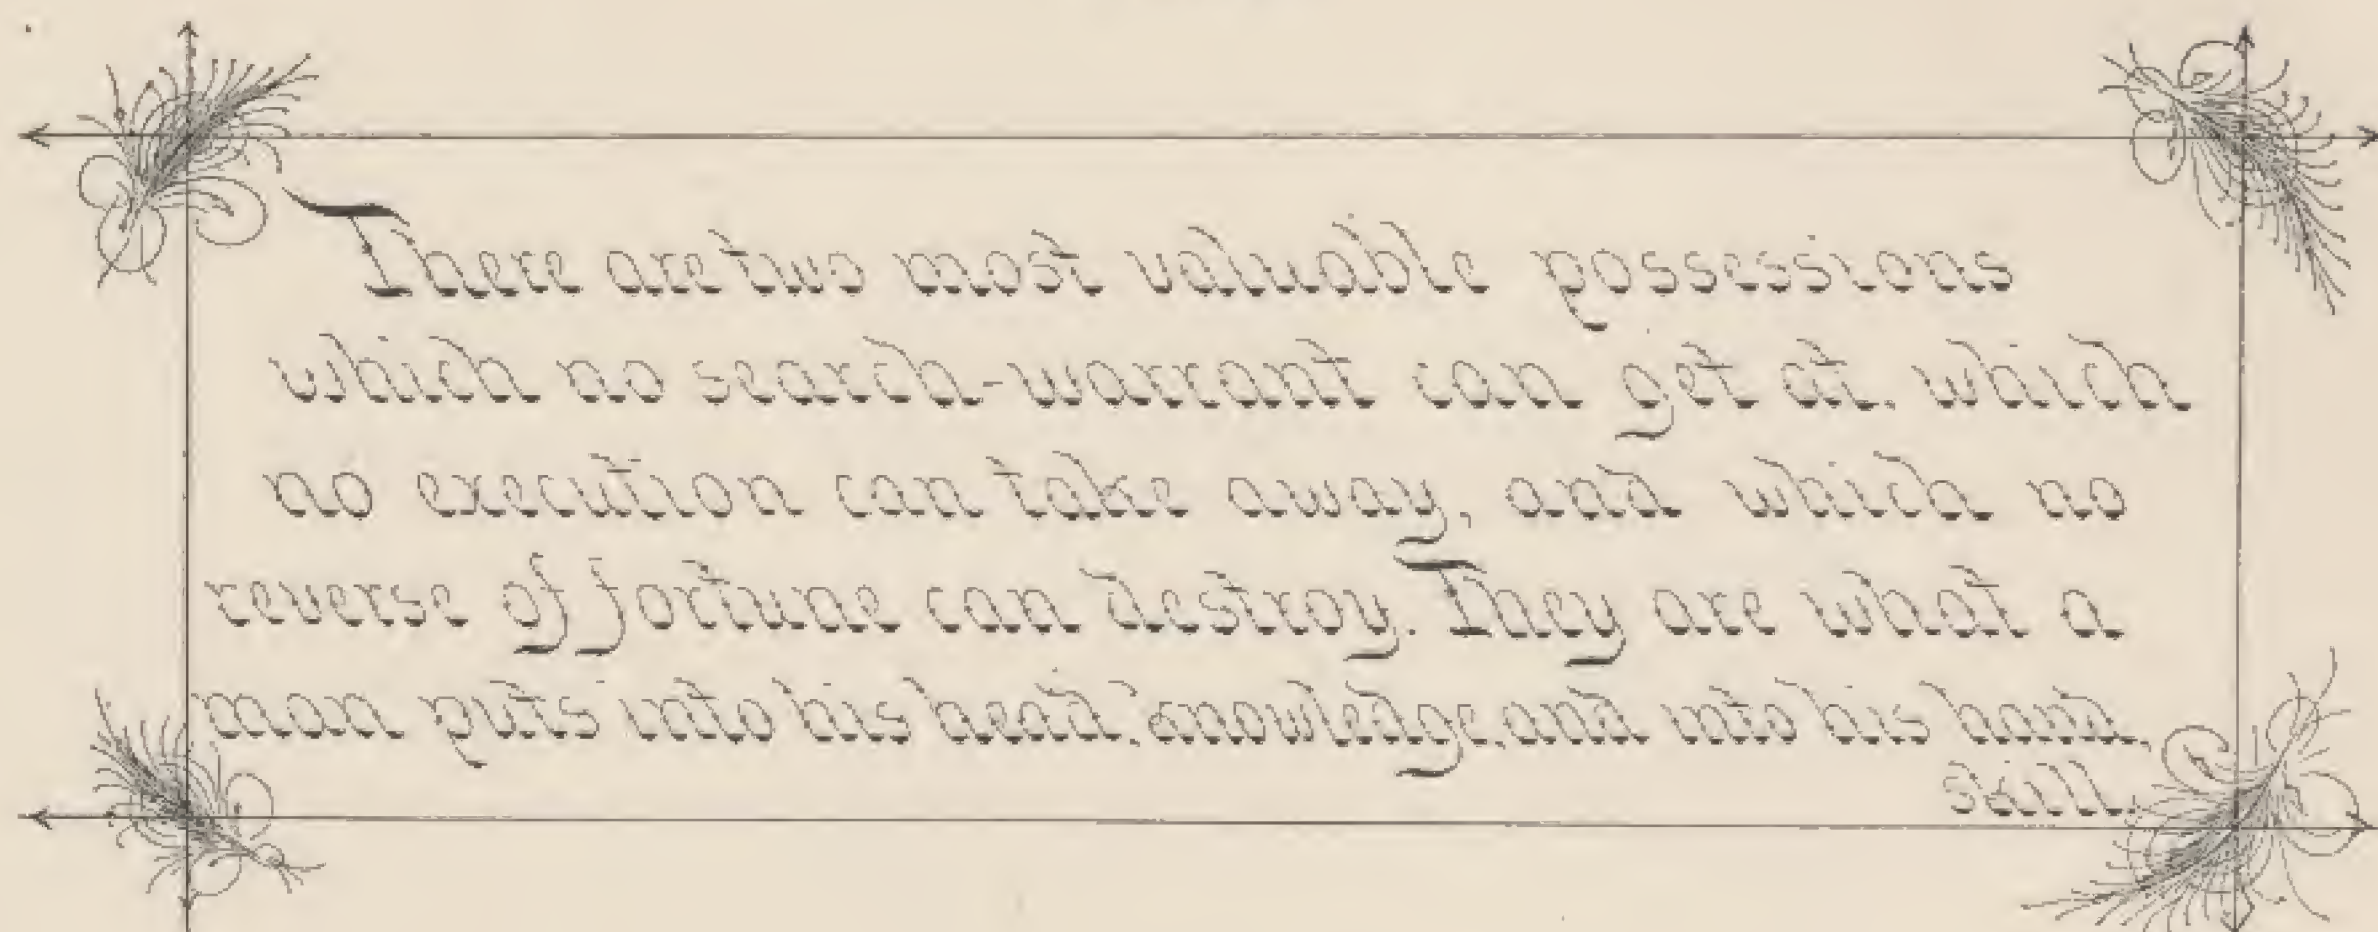 There are two most valuable possessions
which no search-warrant can get at, which
no execution can take away, and which no
reverse of fortune can destroy. They are what a
man puts into his head, knowledge, and into his hand,
skill.